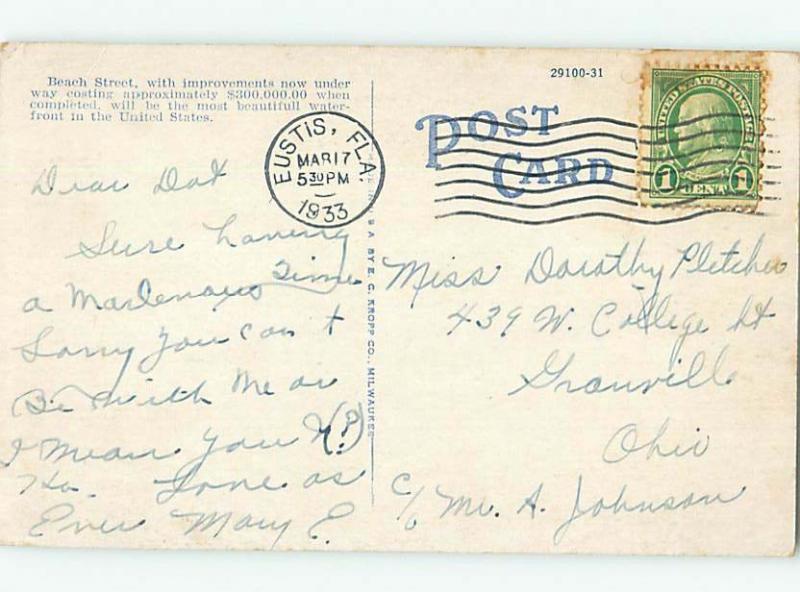 Beach Street, with improvements now under
way costing approximately $300,000.00 when
completed, will be the most beautifull water-
front in the United States.
29100-31
POST
CARD
EUSTIS, FLA.
MAR 17
5 30 PM
1933
UNITED STATES POSTAGE
1 CENT 1
Dear Dot
Sure having
a Marlenous Time
Sorry you can't
Be with Me or
I mean you &
Ha. Love as
Ever Mary E.
BY E. C. KROPP CO., MILWAUKEE
Miss Dorothy Pletcher
439 W. College St
Granville
Ohio
c/o Mr. A. Johnson